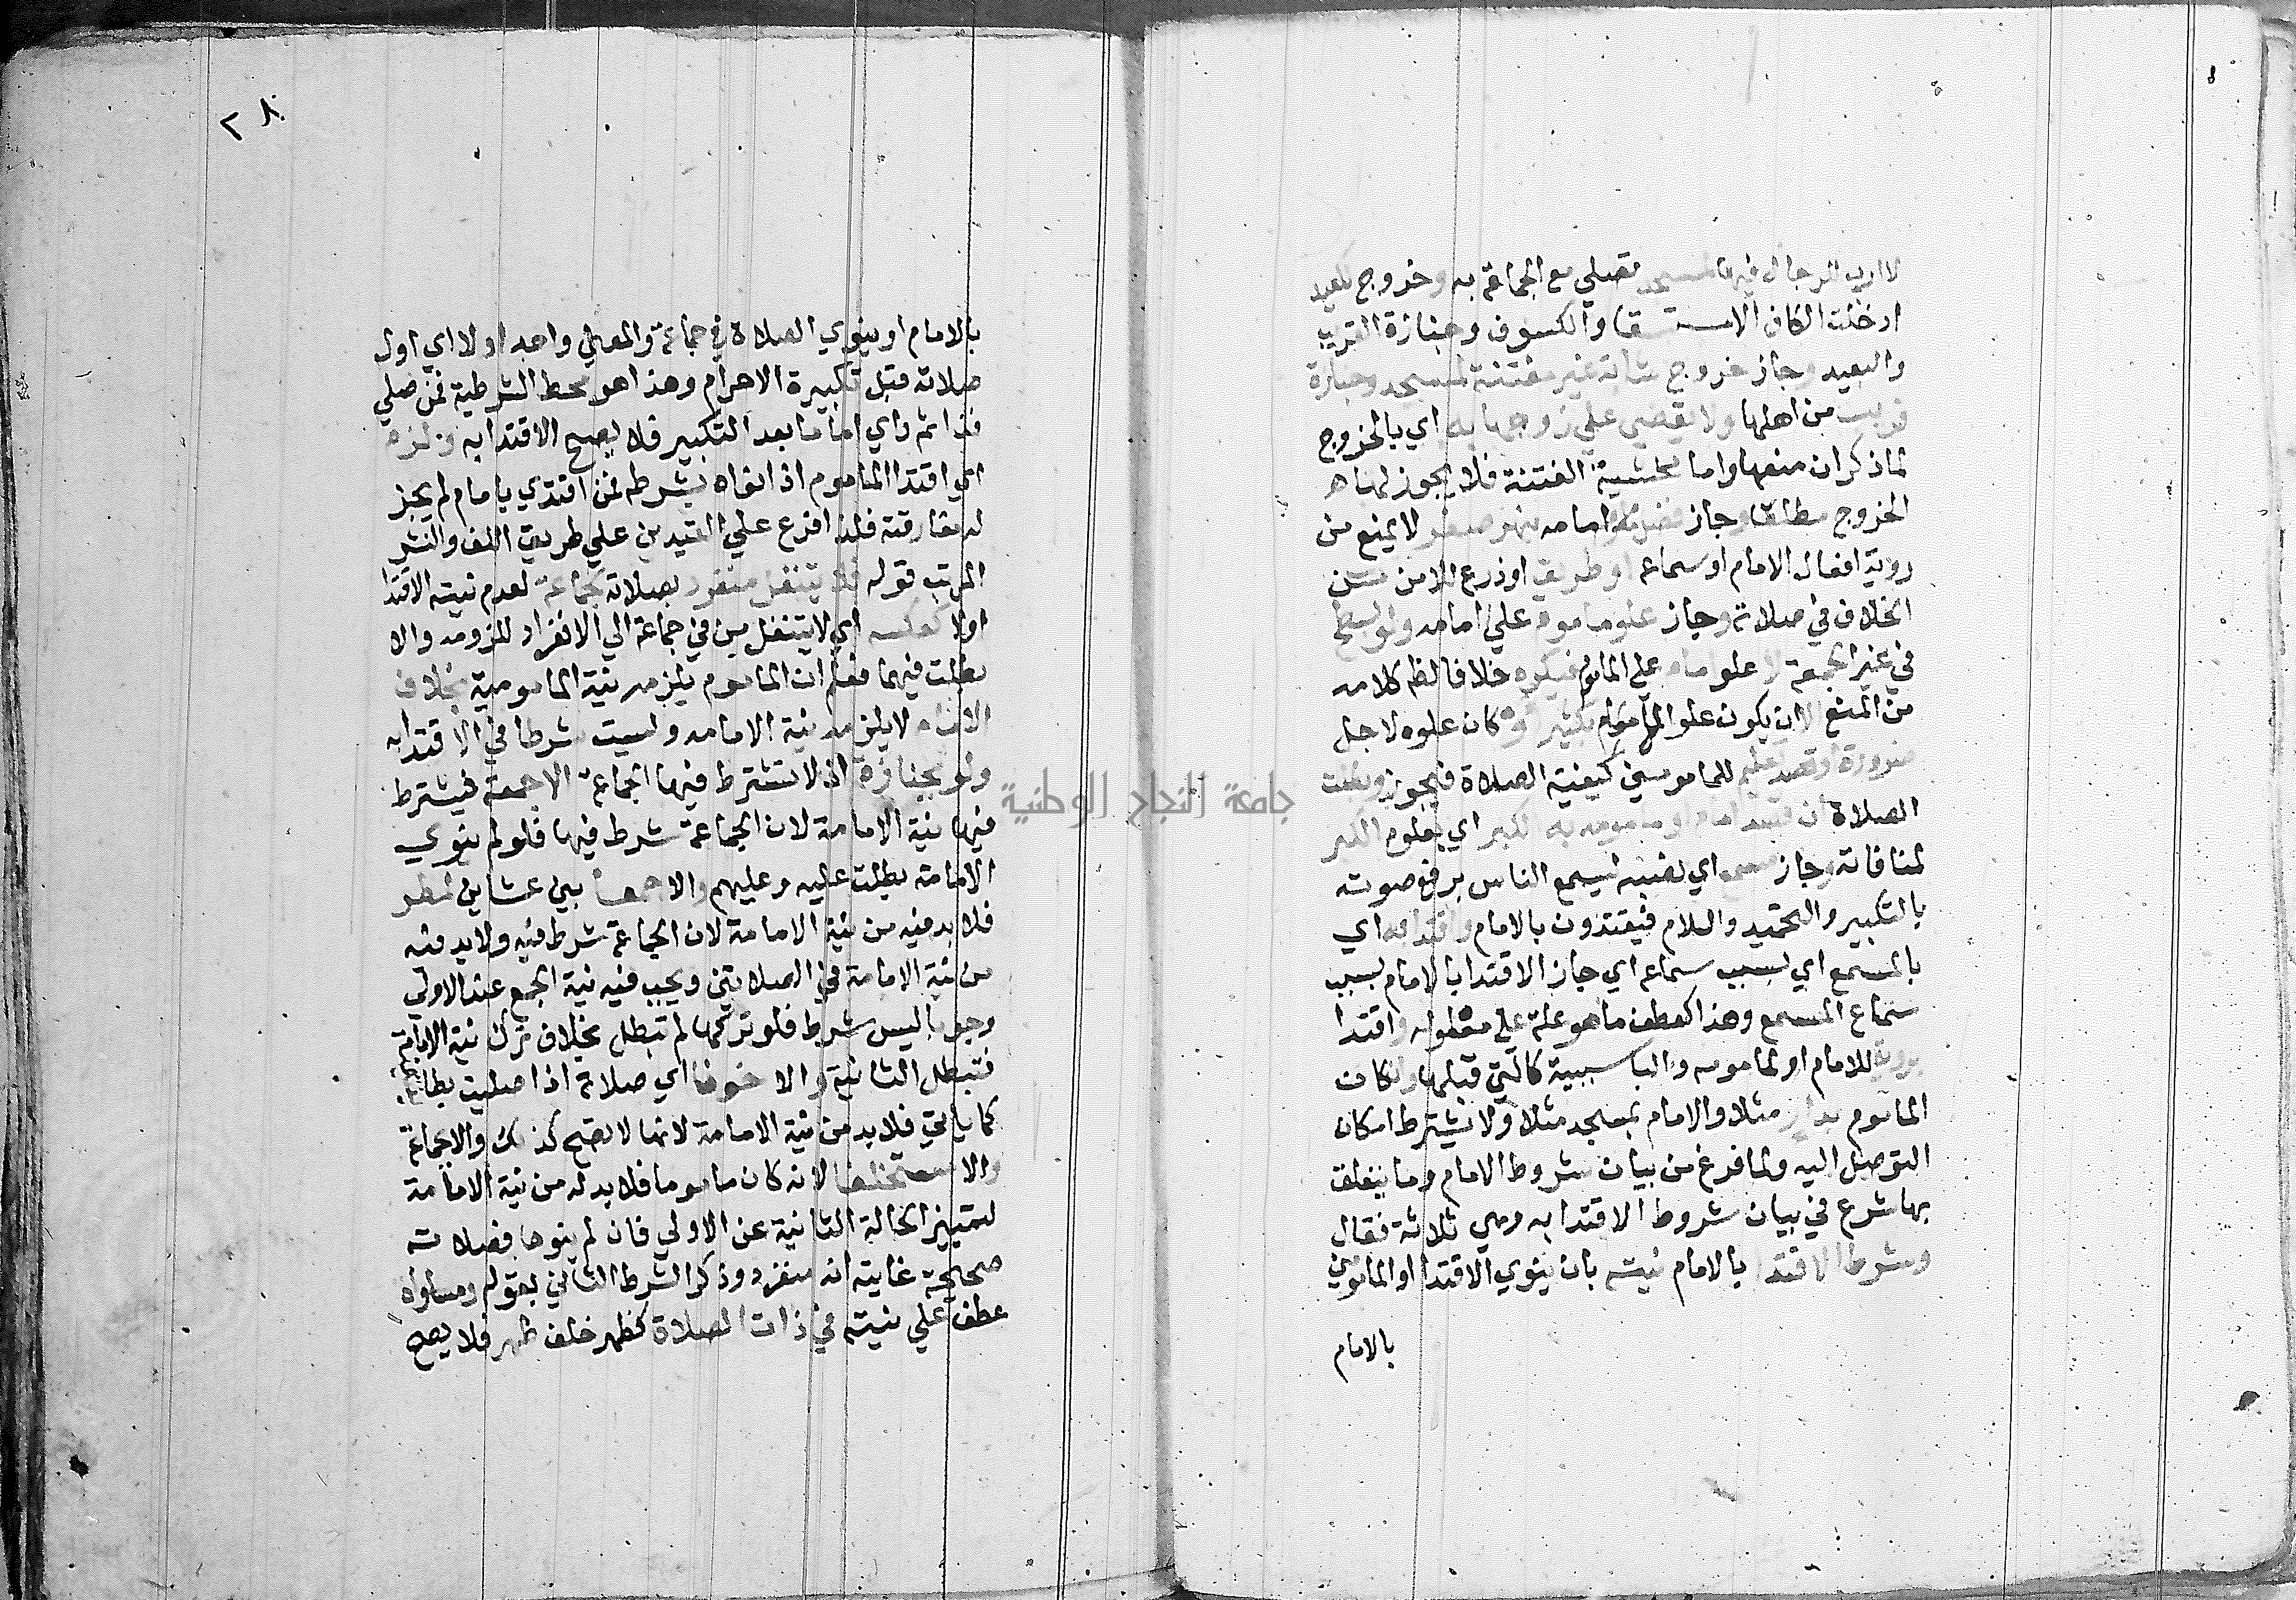 لا ارب للرجال فيها لمسجد فتصلي مع الجماعة به وخروج لعيد
ادخلت الكاف الاستسقا والكسوف وجنازة القريب
والبعيد وجاز خروج شابة غير مفتنة لمسجد وجنازة
قريب من اهلها ولا يقضي علي زوجها به اي بالخروج
لما ذكر ان منعها واما مخشية الفتنة فلا يجوز لها
الخروج مطلقا وجاز امامه بنهر صغير لا يمنع من
روية افعال الامام او سماعه او طريق او زرع للامن من
الخلاف في صلاته وجاز علو ماموم علي امامه ولو بسطح
في غير الجمعة لا علو امام علي الماموم فيكره خلافا لظ كلامه
من المنع الا ان يكون علو الماموم وكان علوه لاجل
ضرورة او قصد تعليم للمامومين كيفية الصلاة فيجوز وبطلت
الصلاة ان قصد امام او مامومه به الكبر اي بعلوه الكبر
لمنافاته وجاز مسمع اي نصبه ليسمع الناس برفع صوته
بالتكبير والتحميد والسلام فيقتدون بالامام واقتدا به اي
بالمسمع اي بسبب سماعه اي جاز الاقتدا بالامام بسبب
سماع المسمع وهذا كعطف ما هو علة علي معلوله واقتدا
بروية للامام او لمامومه والبا سببية كالتي قبلها وان كان
الماموم بدار مثلا والامام بمسجد مثلا ولا يشترط امكان
التوصل اليه ولما فرغ من بيان شروط الامام وما يتعلق
بها شرع في بيان شروط الاقتدا به وهي ثلاثة فقال
وشرط الاقتدا بالامام نيته بان ينوي الاقتدا او المامومية
بالامام
٢٨
بالامام او ينوي الصلاة في جماعة والمعني واحد اولا اي اول
صلاته قبل تكبيرة الاحرام وهذا هو محط الشرطية فمن صلي
فذا ثم راي اماما بعد التكبير فلا يصح الاقتدا به ولزم
اي اقتدا الماموم اذ انواه بشرطه فمن اقتدي بامام لم يجز
له مفارقته فلذا فرع علي القيدين علي طريق اللف والنشر
المرتب قوله فلا ينتقل منفرد بصلاته لجماعة لعدم نيته الاقتدا
اولا كعكسه اي لا ينتقل من في جماعة الي الانفراد للزومه والا
بطلت فيهما فعلم ان الماموم يلزمه نية المامومية بخلاف
الامام لا يلزمه نية الامامه وليست شرطا في الاقتدا به
ولو بجنازة اذ لا تشترط فيها الجماعة الا جمعة فيشترط
فيها نية الامامة لان الجماعة شرط فيها فلو لم ينوي
الامامة بطلت عليه وعليهم والا جمعا بين عشاين لمطر
فلا بد فيه من نية الامامة لان الجماعة شرط فيه ولا بد فيه
من نية الامامة في الصلاتين ويجب فيه نية الجمع عند الاولي
وجوبا ليس شرط فلو تركها لم تبطل بخلاف ترك نية الامامة
فتبطل الثانية والا خوفا اي صلاة اذا صليت بطائفتين
كما ياتي فلا بد من نية الامامة لانها لا تصح كذلك والا بجماعة
والا مستخلفا لانه كان ماموما فلا بد له من نية الامامة
لتمييز الحالة الثانية عن الاولي فان لم ينوها فصلاته
صحيحة غايته انه منفرد وذكر الشرط الثاني بقوله ومساواة
عطف علي نيته في ذات الصلاة كظهر خلف ظهر فلا يصح
جامعة النجاح الوطنية